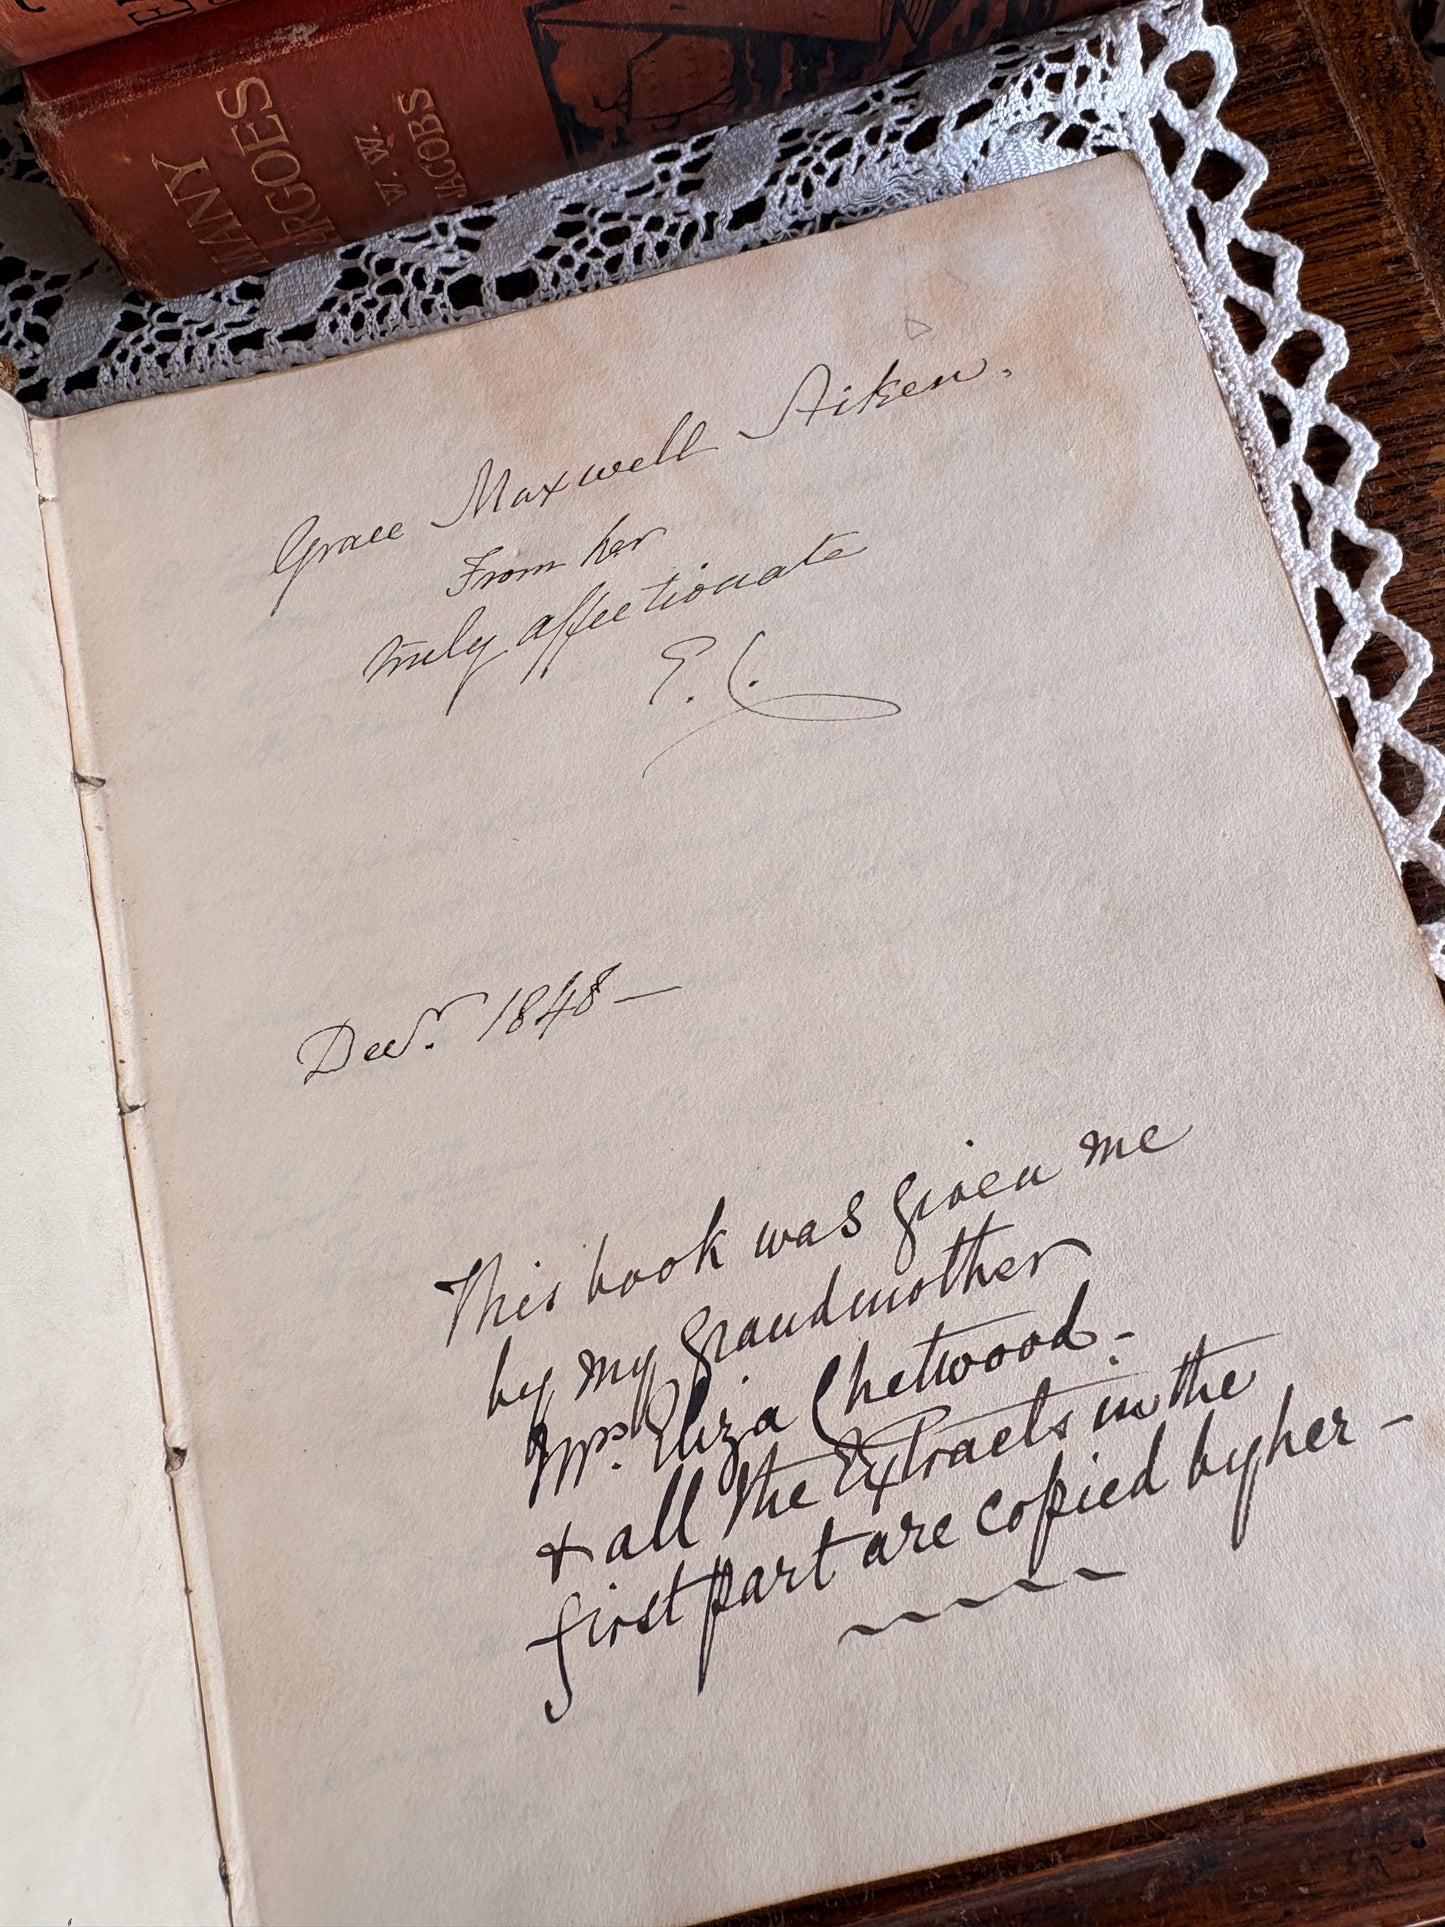 MANY
CARGOES
W. W.
JACOBS
Grace Maxwell Aiken.
From her
truly affectionate
E. C.
Decr. 1848 —
This book was given me
by my Grandmother
Mrs. Eliza Chetwood. -
& all the Extracts in the
first part are copied by her -